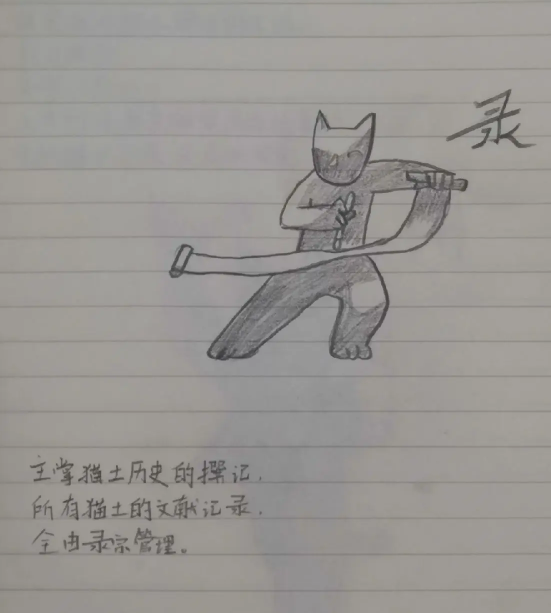 录
主掌猫土历史的撰记.
所有猫土的文献记录.
全由录宗管理。